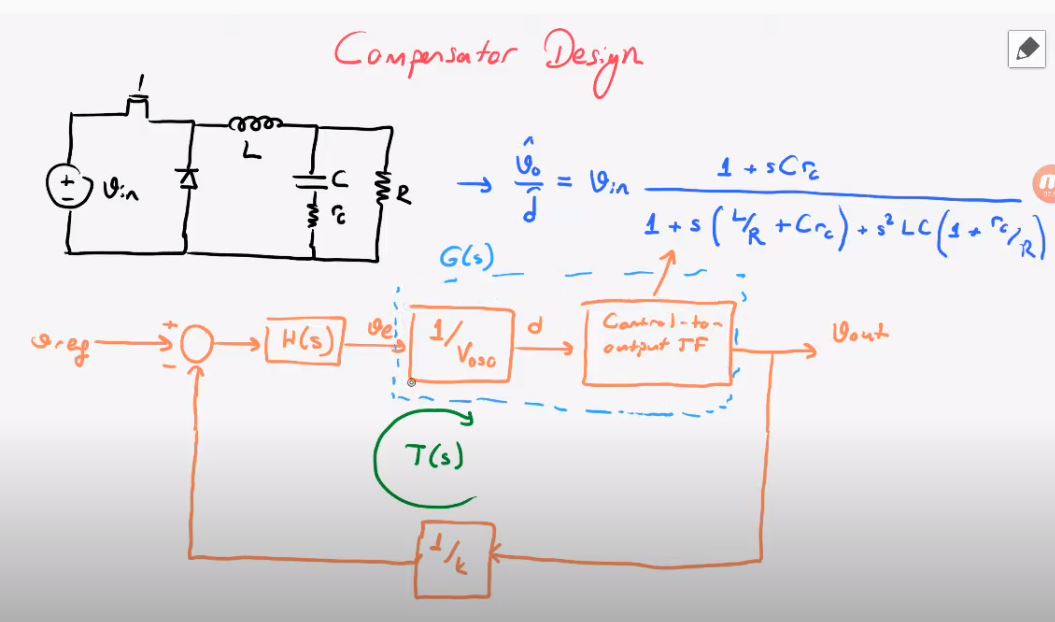 Compensator Design
+
-
vin
L
C
rc
R
→ v̂o / d̂ = vin (1 + sCrc) / (1 + s(L/R + Crc) + s²LC(1 + rc/R))
G(s)
vref
+
-
H(s)
ve
1/Vosc
d
Control-to-
output TF
vout
T(s)
1/k